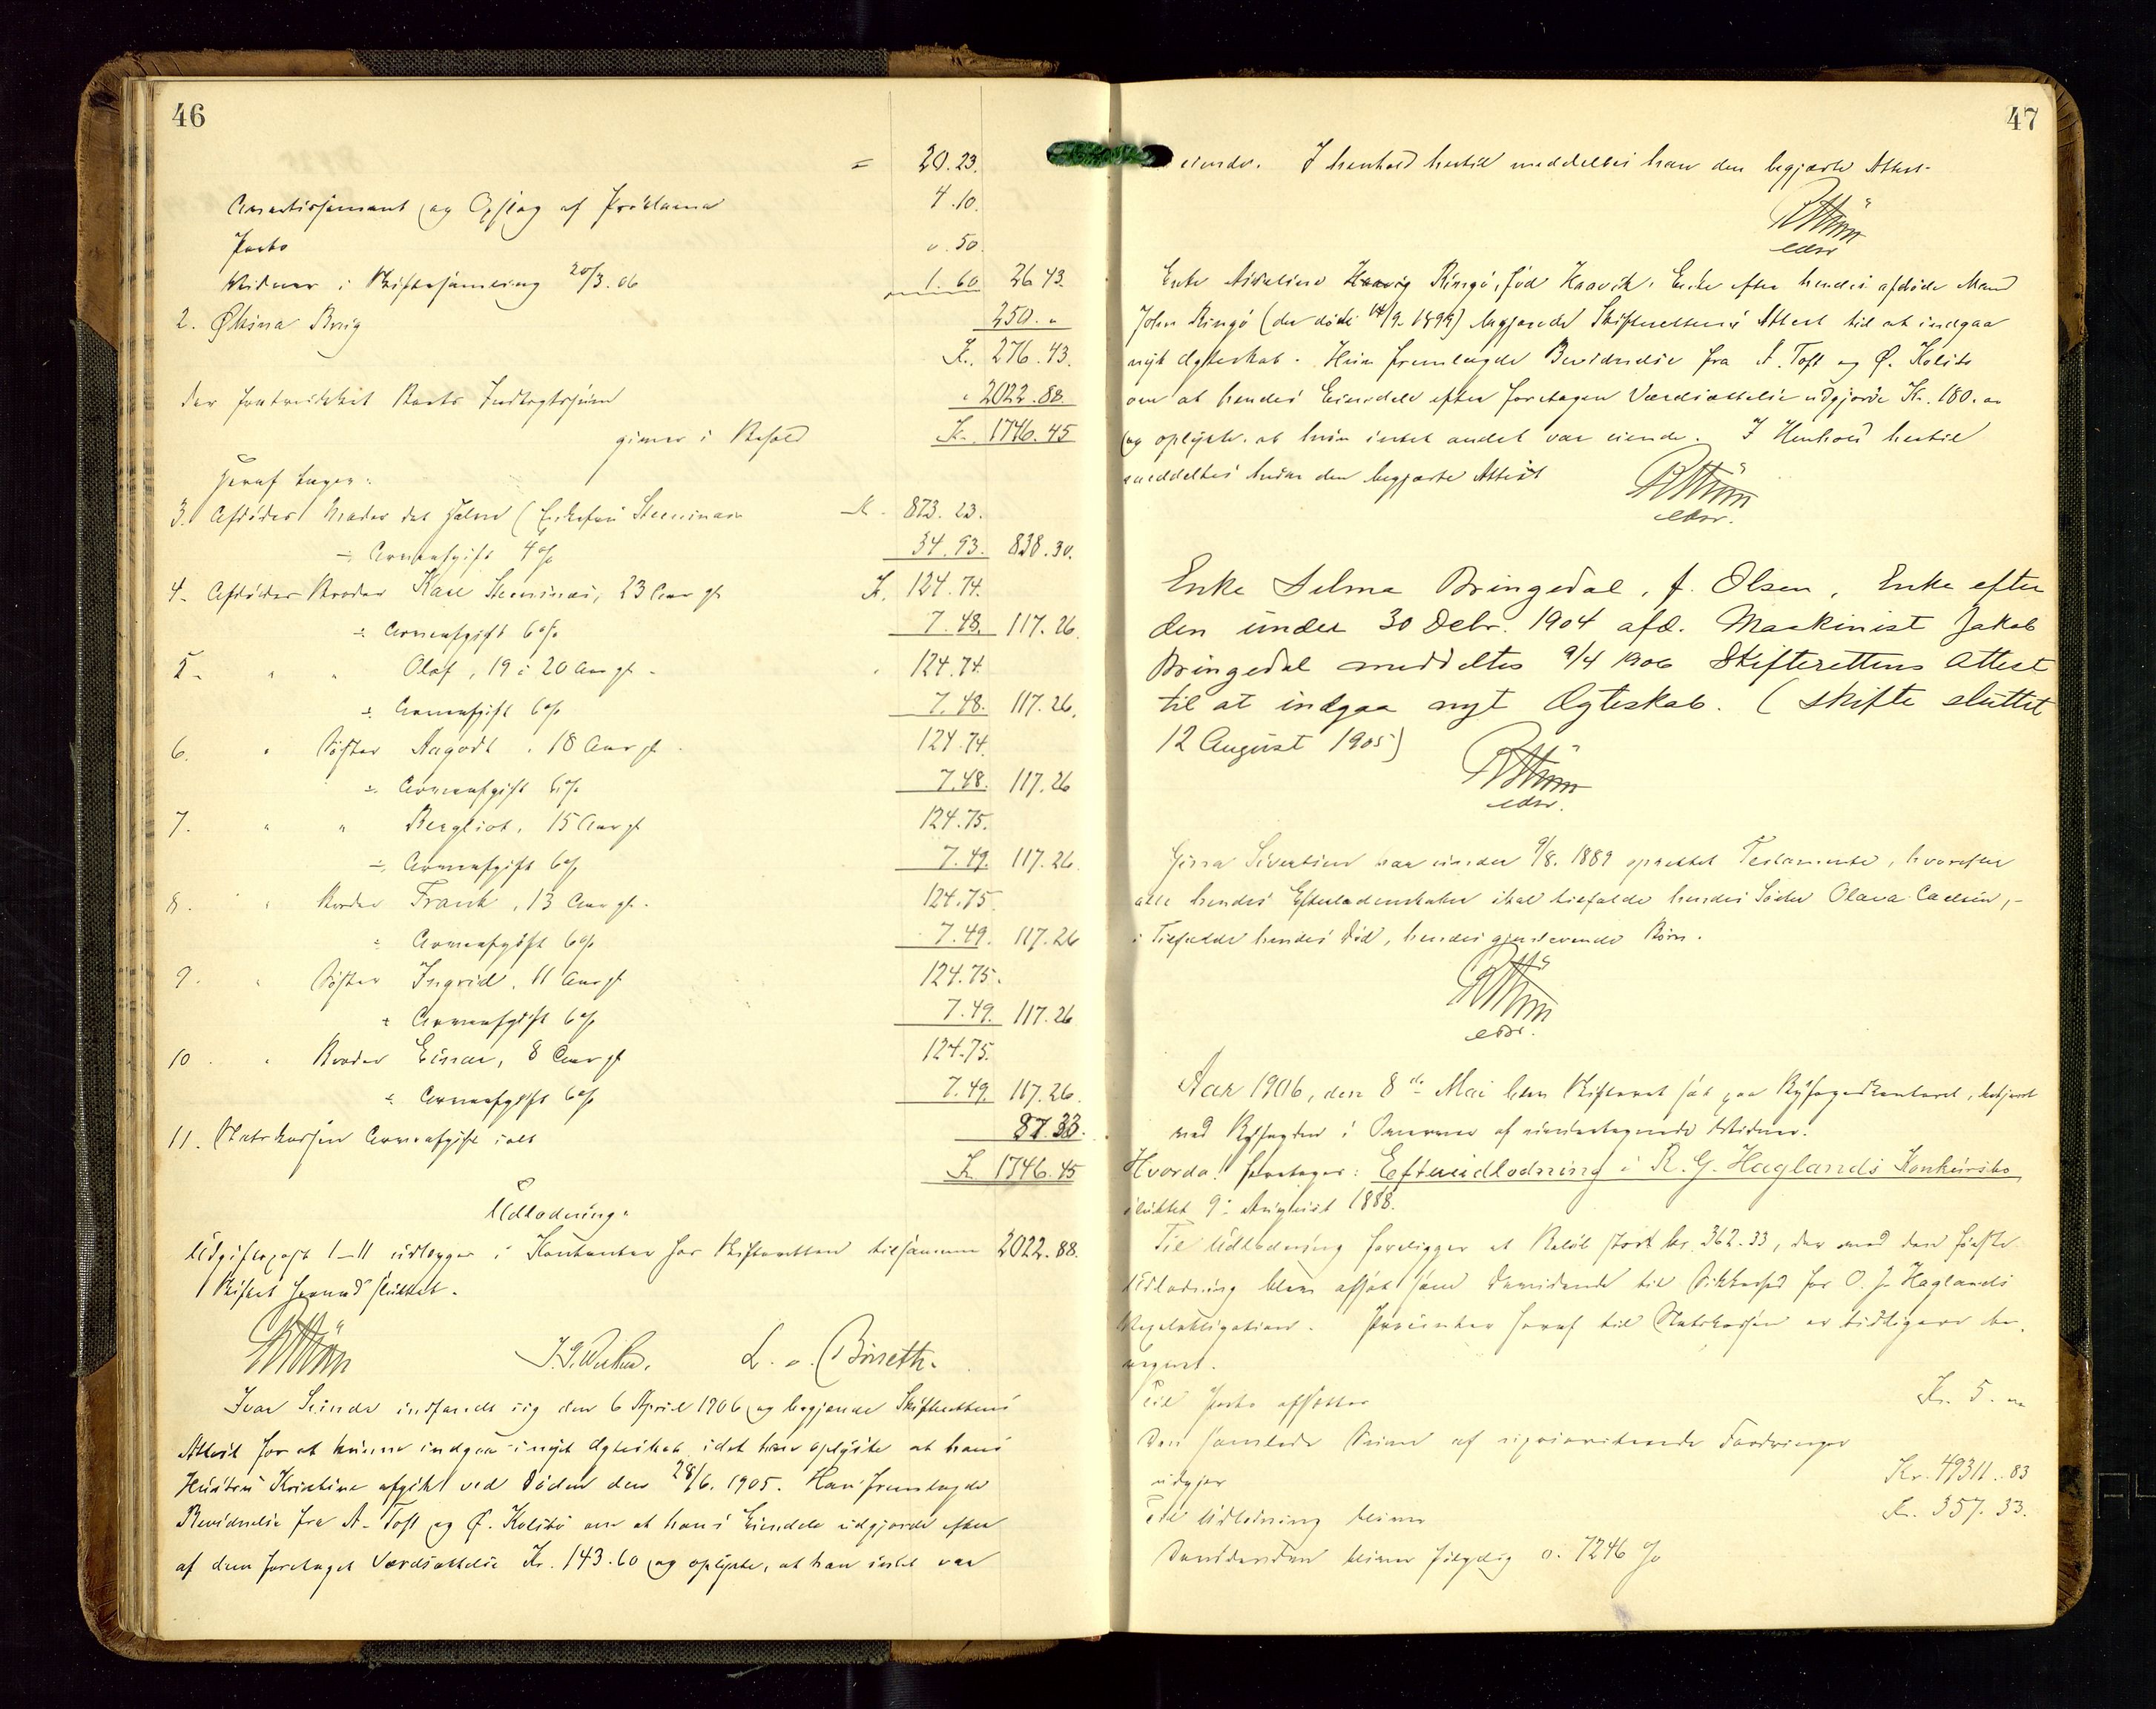 46
= 20.23.
Avertissement og Opslag af Proklama 4.10.
Porto 0.50.
Vidner i Skiftesamling 20/3.06 1.60 26.43.
2. Økina Brug 250. "
Kr. 276.43.
der fratrukket Boets Indtægtssum " 2022.88.
giver i Behold Kr. 1746.45
Heraf tager:
3. Afdødes Moder det halve (Enkefru Kr. 873.23.
÷ Arveafgift 4% 34.93. 838.30.
4. Afdødes Broder Kare 23 Aar gl. Kr. 124.74.
÷ Arveafgift 6% 7.48. 117.26.
5. " " Olaf, 19 à 20 Aar gl. " 124.74.
÷ Arveafgift 6% 7.48. 117.26.
6. " Søster Aagodt, 18 Aar gl. 124.74.
÷ Arveafgift 6% 7.48. 117.26
7. " " Bergliot, 15 Aar gl. 124.75.
÷ Arveafgift 6% 7.49. 117.26.
8. " Broder Frank, 13 Aar gl. 124.75.
÷ Arveafgift 6% 7.49. 117.26
9. " Søster Ingrid, 11 Aar gl. 124.75.
÷ Arveafgift 6% 7.49. 117.26
10. " Broder Einar, 8 Aar gl. 124.75.
÷ Arveafgift 6% 7.49. 117.26.
11. Statskassen Arveafgift ialt 87.33.
Kr. 1746.45
Udlodning:
Udgiftspost 1-11 udlægges i Kontanter hos Skifteretten tilsammen 2022.88.
Skiftet hermed sluttet.
Ivar indfandt sig den 6 April 1906 og begjærede Skifterettens
Attest for at kunne indgaa i nyt Ægteskab, idet han oplyste at hans
Hustru Kristine afgik ved Døden den 28/6. 1905. Han fremlagde
Bevidnelse fra A. Toft og Ø. Kolstø om at hans Eiendele udgjorde efter
af dem foretaget Værdsættelse Kr. 143.60 og oplyste, at han intet var
47
eiende. I henhold hertil meddeltes ham den begjærte Attest.
edsv.
Enke Ringø, fød Haavik, Enke efter hendes afdøde Mand
John Ringø (der døde 14/9. 1899) begjærede Skifterettens Attest til at indgaa
nyt Ægteskab. Hun fremlagde Bevidnelse fra A. Toft og Ø. Kolstø
om at hendes Eiendele efter foretagen Værdsættelse udgjorde Kr. 180.00
og oplyste, at hun intet andet var eiende. I Henhold hertil
meddeltes hende den begjærte Attest
edsv.
Enke Selma Bringedal, f. Olsen, Enke efter
den under 30 Debr. 1904 afd. Maskinist Jakob
Bringedal meddeltes 9/4 1906 Skifterettens Attest
til at indgaa nyt Ægteskab. (Skifte sluttet
12 August 1905)
edsv.
Sivertsen har under 9/8. 1889 oprettet Testamente, hvorefter
alle hendes Efterladenskaber skal tilfalde hendes Søster Olava Carlsen, -
i Tilfælde hendes Død, hendes gjenlevende Børn.
edsv.
Aar 1906, den 8de Mai blev Skifteret sat paa Byfogedkontoret, betjent
med Byfogden i Overvær af undertegnede Vidner.
Hvorda! foretoges: Efterudlodning i R. G. Haglands Konkursbo
sluttet 9: August 1888.
Til Udlodning foreligger et Beløb stort kr. 362.33, der med den første
Udlodning blev afsat som Dividende til Sikkerhed for O. J. Haglands
Vexelobligation. Procenter heraf til Statskassen er tidligere be-
regnet.
Til Porto afsættes Kr. 5. "
Den samlede Sum af uprioriterede Fordringer
udgjør Kr. 49311.83
Til Udlodning bliver Kr. 357.33.
Dividenden bliver følgelig 0.7246 %